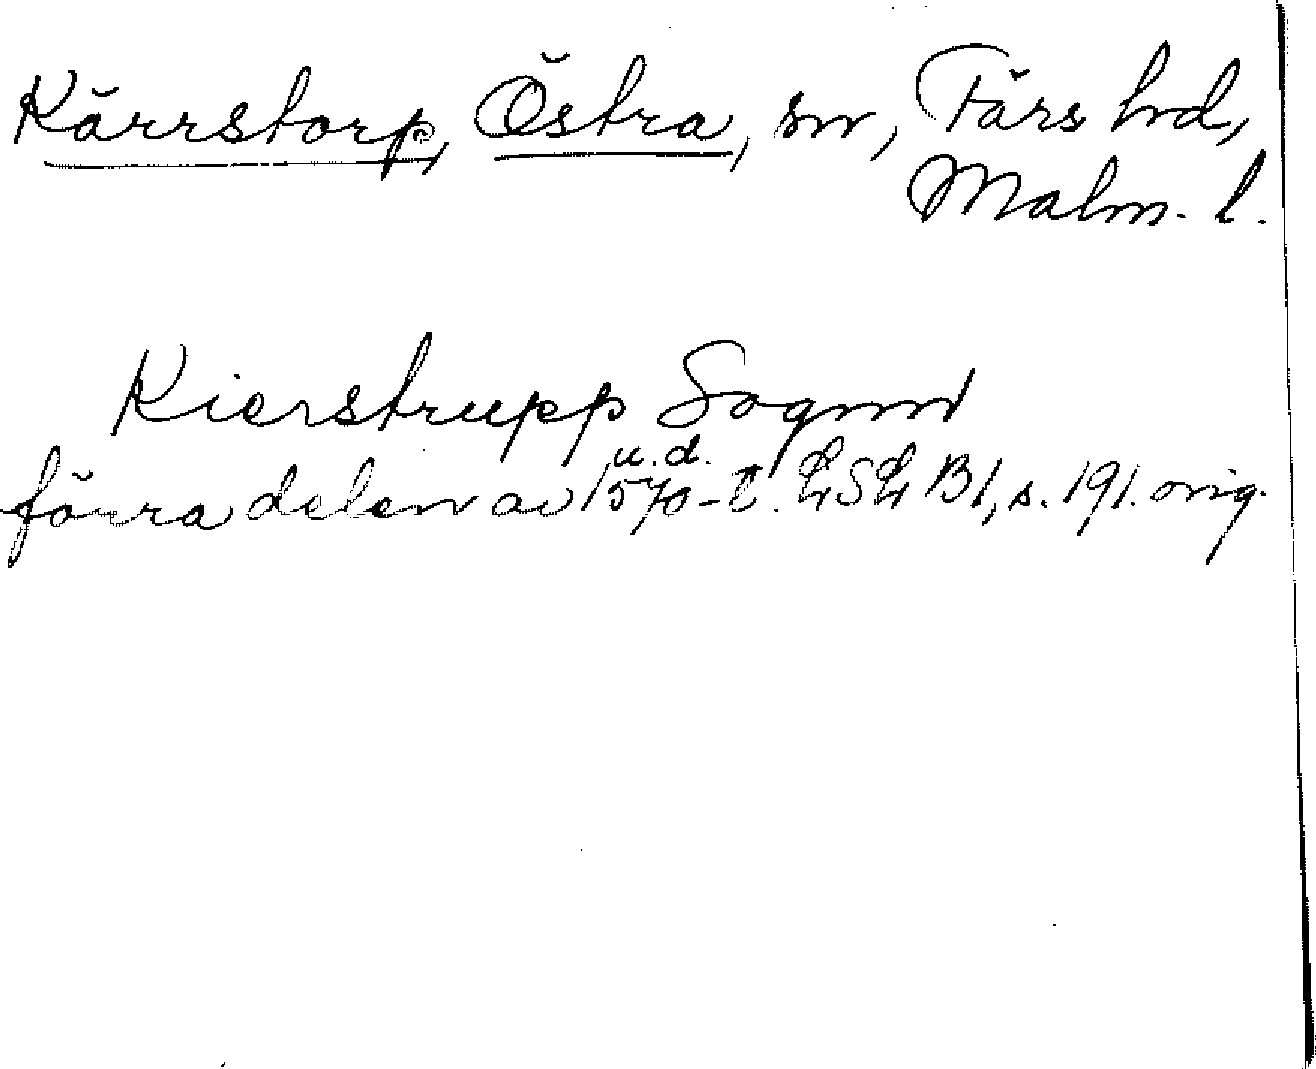 Kärrstorp, Östra, sn, Färs hrd,
Malm. l.
Kierstrupp Sognn
u.d.
förra delen av 1570-t. LSL B1, s. 191. orig.